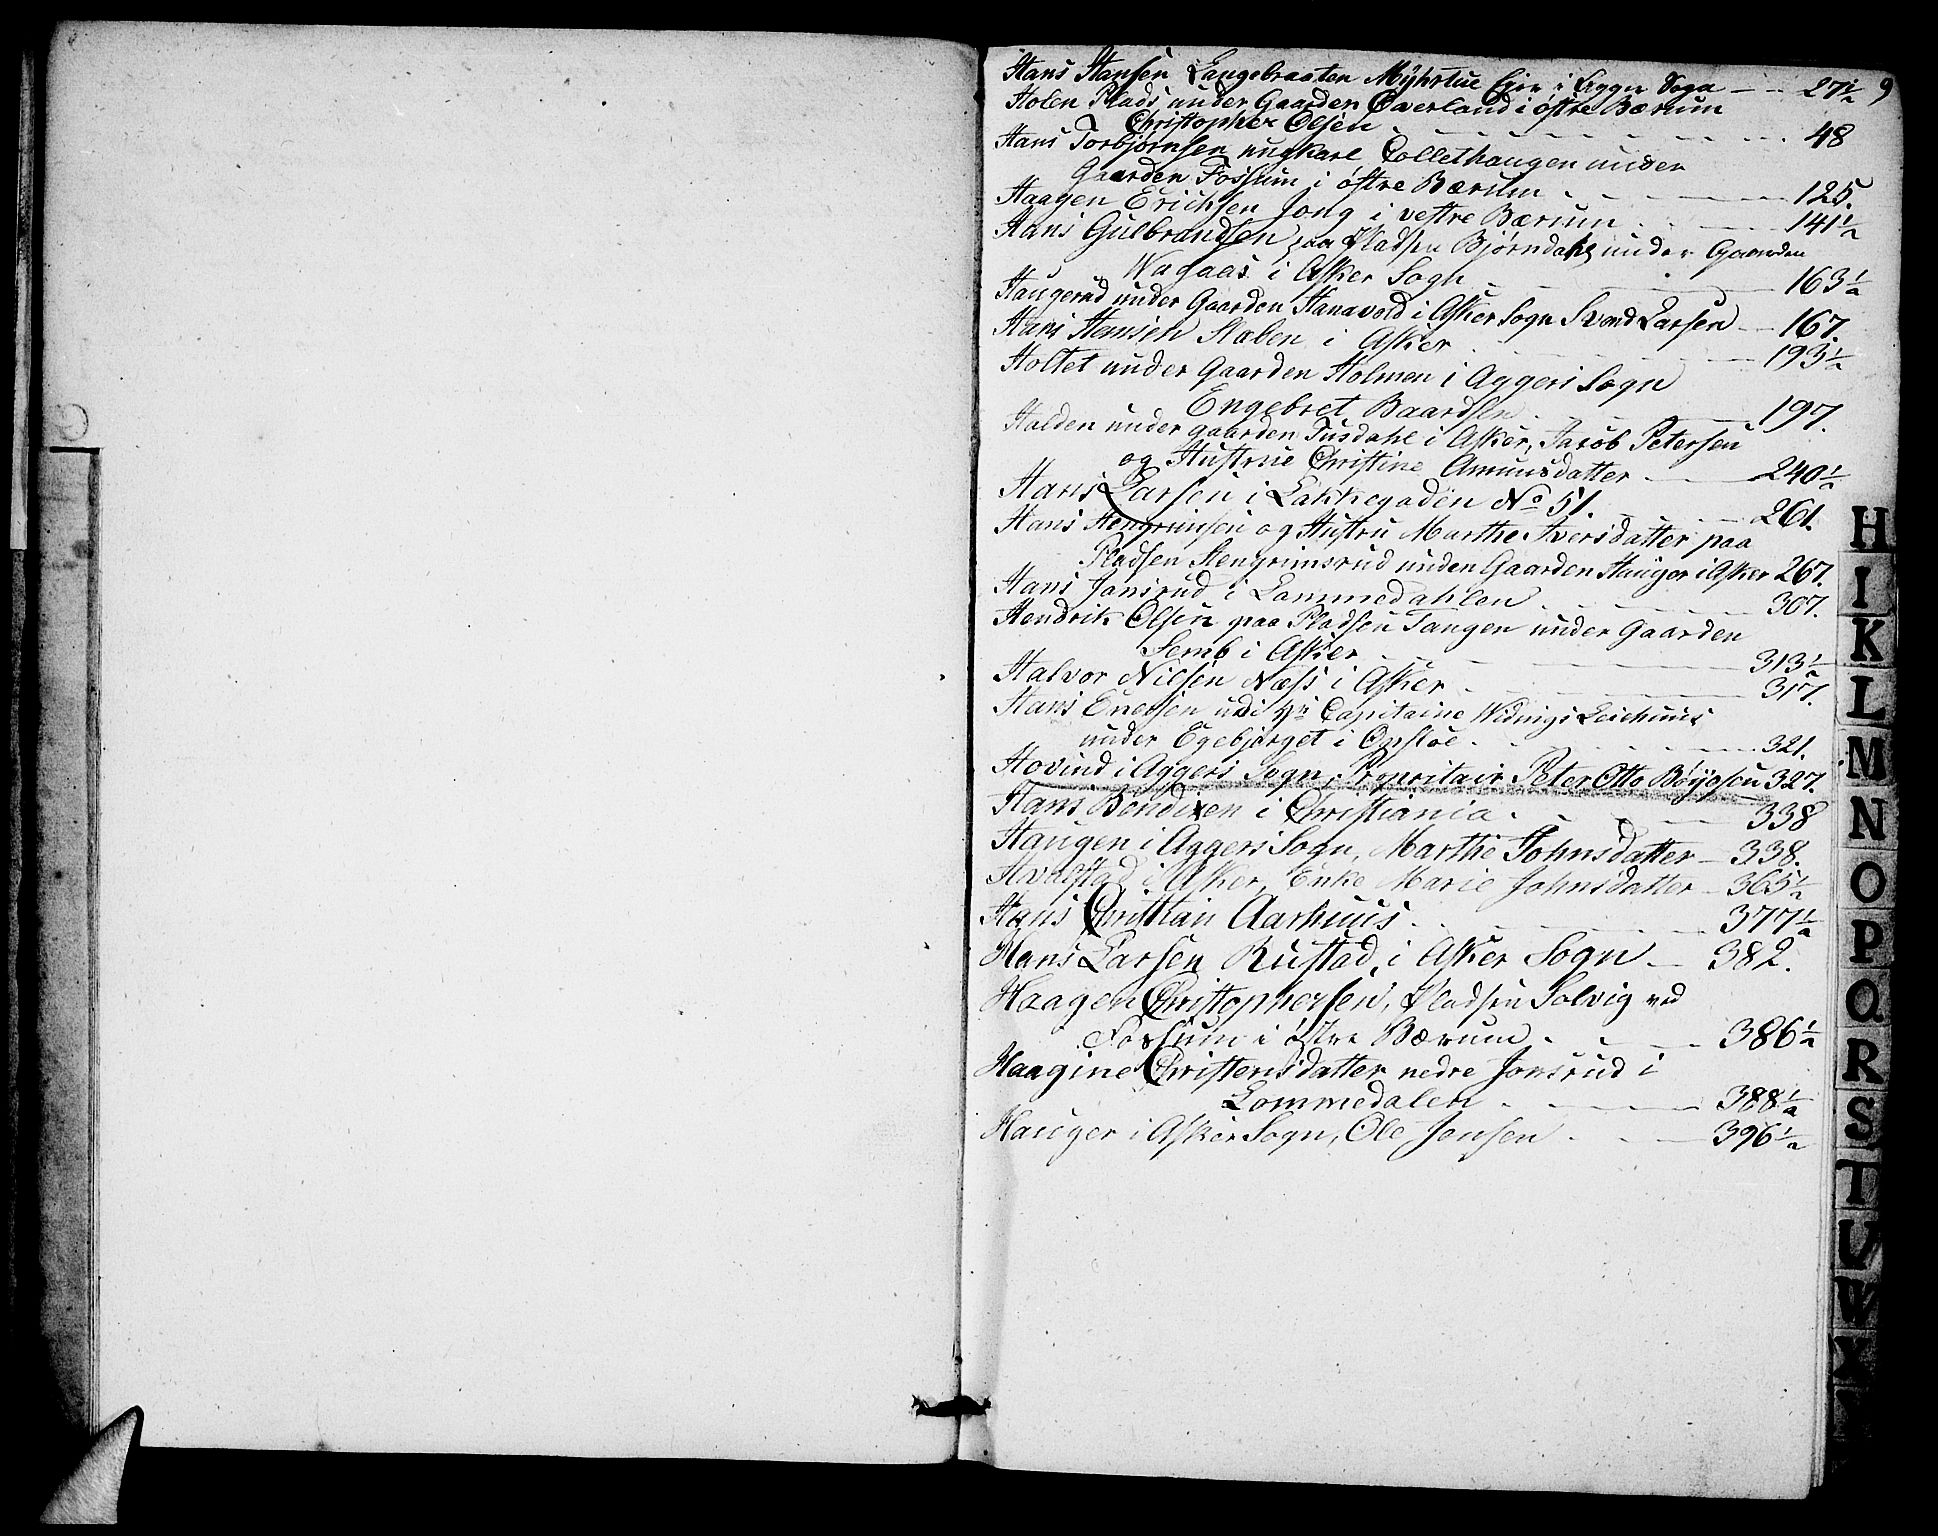 Hans Hansen Langebraaten Myhrstue Eier i Agger Sogn 27½ 9
Holen Plads under Gaarden Øwerland i østre Bærum
Christopher Olsen 48
Hans Torbjørnsen ungkarl Collethaugen under
Gaarden Fossum i østre Bærum 125.
Haagen Erichsen Jong i vestre Bærum 141½
Hans Gulbrandsen paa Pladsen Bjørndahl under Gaarden
Wagaas i Asker Sogn 163½
Haugerud under Gaarden Hanavold i Asker Sogn Svend Larsen 167.
Hans Hansen Staben i Asker 193½
Holtet under Gaarden Holmen i Aggers Sogn
Engebret Baardsen 197.
Halden under gaarden Tusdahl i Asker, Jacob Petersen
og Hustrue Christine Amunsdatter 240½
Hans Larsen i Lakkegaden No 51. 261.
Hans Hengrimsen og Hustru Marthe Iversdatter paa
Pladsen Hengrimsrud under Gaarden Hauger i Asker 267.
Hans Jonsrud i Lommedahlen 307.
Hendrik Olsen paa Pladsen Tangen under Gaarden
Semb i Asker 313½
Halvor Nielsen Næss i Asker 317.
Hans Enersen udi Hr Capitaine Widings
under Egebjerget i Opsloe 321.
Hovind i Aggers Sogn, Propritair Peter Otto Bøypsen 327.
Hans Bendixen i Christiania 338
Haugen i Aggers Sogn, Marthe Johnsdatter 338.
Hvalstad i Asker, Enke Marie Johnsdatter 365½
Hans Christian Aarhuus 377½
Hans Larsen Rustad, i Asker Sogn 382.
Haagen Christophersen, Pladsen Solvig ved
Fossum i østre Bærum 386½
Haagine Christensdatter nedre Jonsrud i
Lommedalen 388½
Hauger i Asker Sogn, Ole Jensen 396½
H
I
K
L
M
N
O
P
Q
R
S
T
U
W
X